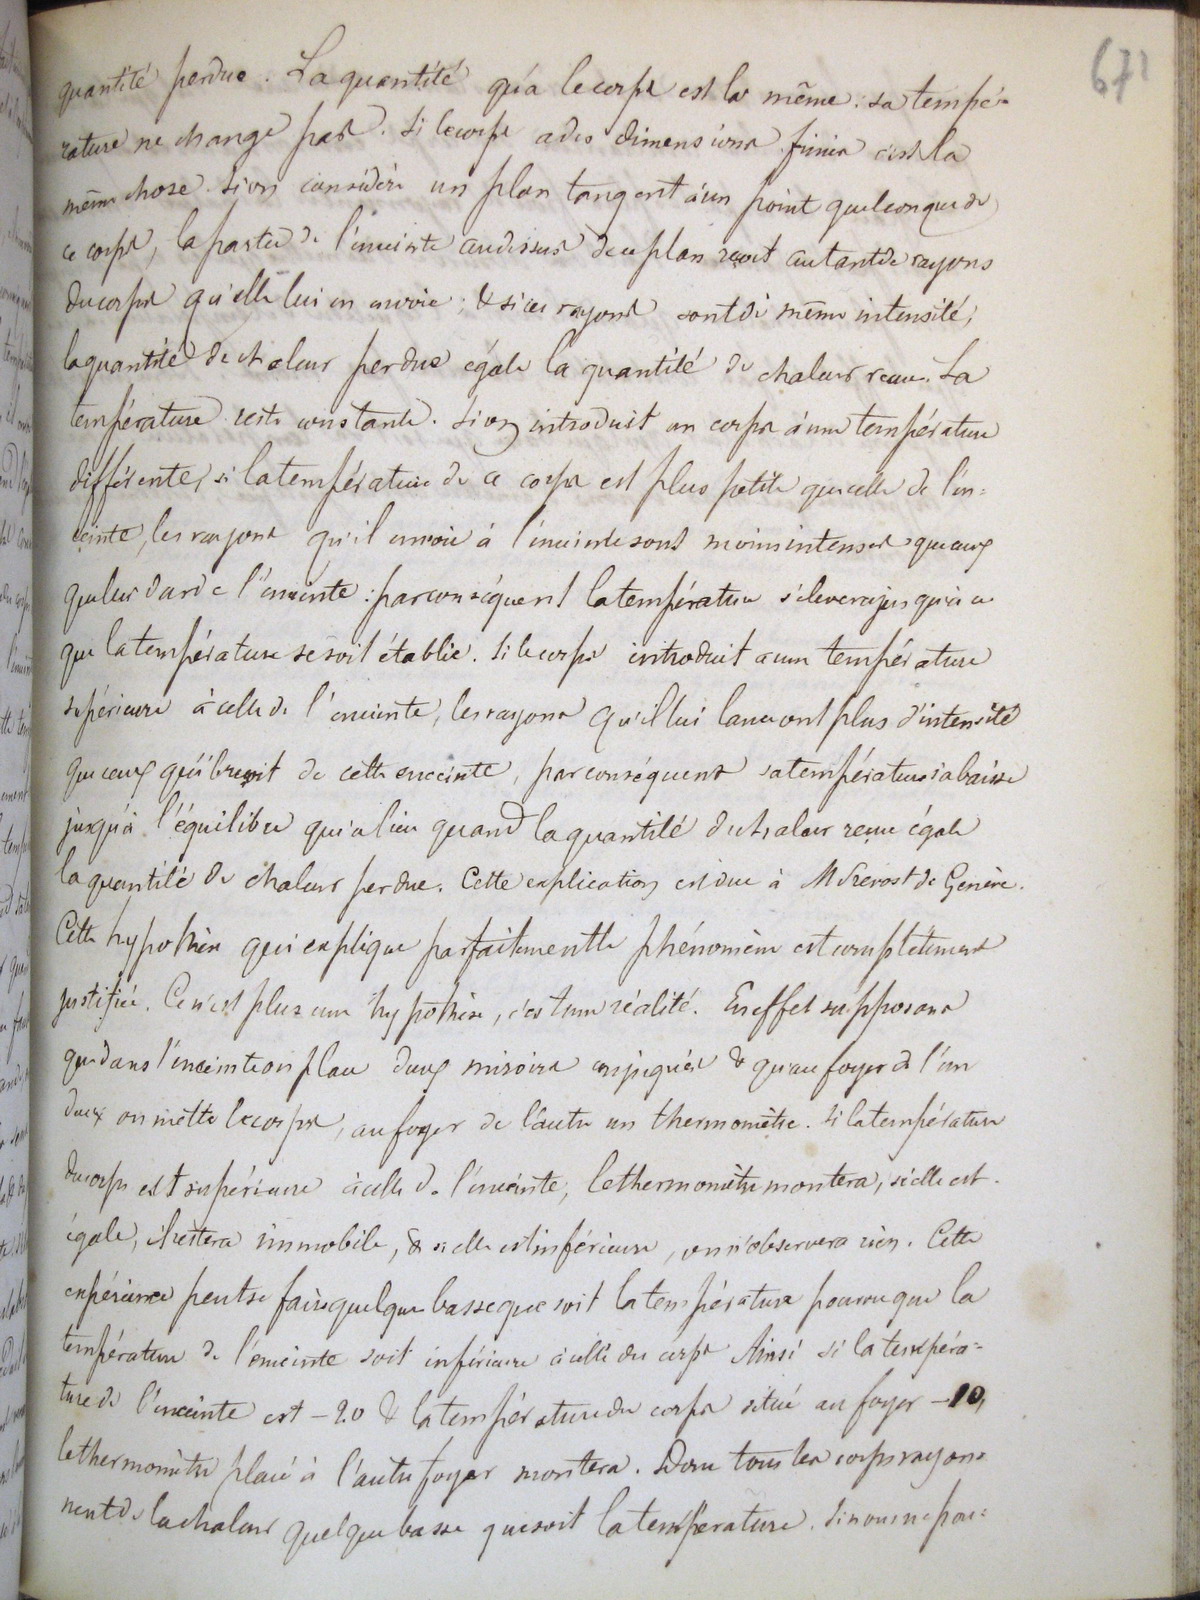 671
quantité perdue. La quantité qu'a le corps est la même : sa tempé-
rature ne change pas. Si le corps a des dimensions finies c'est la
même chose. Si on considère un plan tangent à un point quelconque de
ce corps, la partie de l'enceinte au dessus de ce plan reçoit autant de rayons
du corps qu'elle lui en envoie ; & si ces rayons sont de même intensité,
la quantité de chaleur perdue égale la quantité de chaleur reçue. La
température reste constante. Si on introduit un corps à une température
différente, si la température de ce corps est plus petite que celle de l'en-
ceinte, les rayons qu'il envoie à l'enceinte sont moins intenses que ceux
que lui darde l'enceinte : par conséquent la température s'élevera jusqu'à ce
que la température se soit établie. Si le corps introduit a une température
supérieure à celle de l'enceinte, les rayons qu'il lui lance ont plus d'intensité
que ceux qu'il reçoit de cette enceinte, par conséquent sa température s'abaisse
jusqu'à l'équilibre qui a lieu quand la quantité de chaleur reçue égale
la quantité de chaleur perdue. Cette explication est due à M Prevost de Genève.
Cette hypothèse qui explique parfaitement le phénomène est complètement
justifiée. Ce n'est plus une hypothèse, c'est une réalité. En effet supposons
que dans l'enceinte on place deux miroirs conjugués & qu'au foyer de l'un
deux on mette le corps, au foyer de l'autre un thermomètre. Si la température
du corps est supérieure à celle de l'enceinte, le thermomètre montera, si elle est
égale, il restera immobile, & si elle est inférieure, on n'observera rien. Cette
expérience peut se faire quelque basse que soit la température pourvu que la
température de l'enceinte soit inférieure à celle du corps Ainsi si la tempéra=
ture de l'enceinte est -20 & la température du corps situé au foyer -10,
le thermomètre placé à l'autre foyer montera. Donc tous les corps rayon=
nent de la chaleur quelque basse que soit la température. Si nous ne pou=